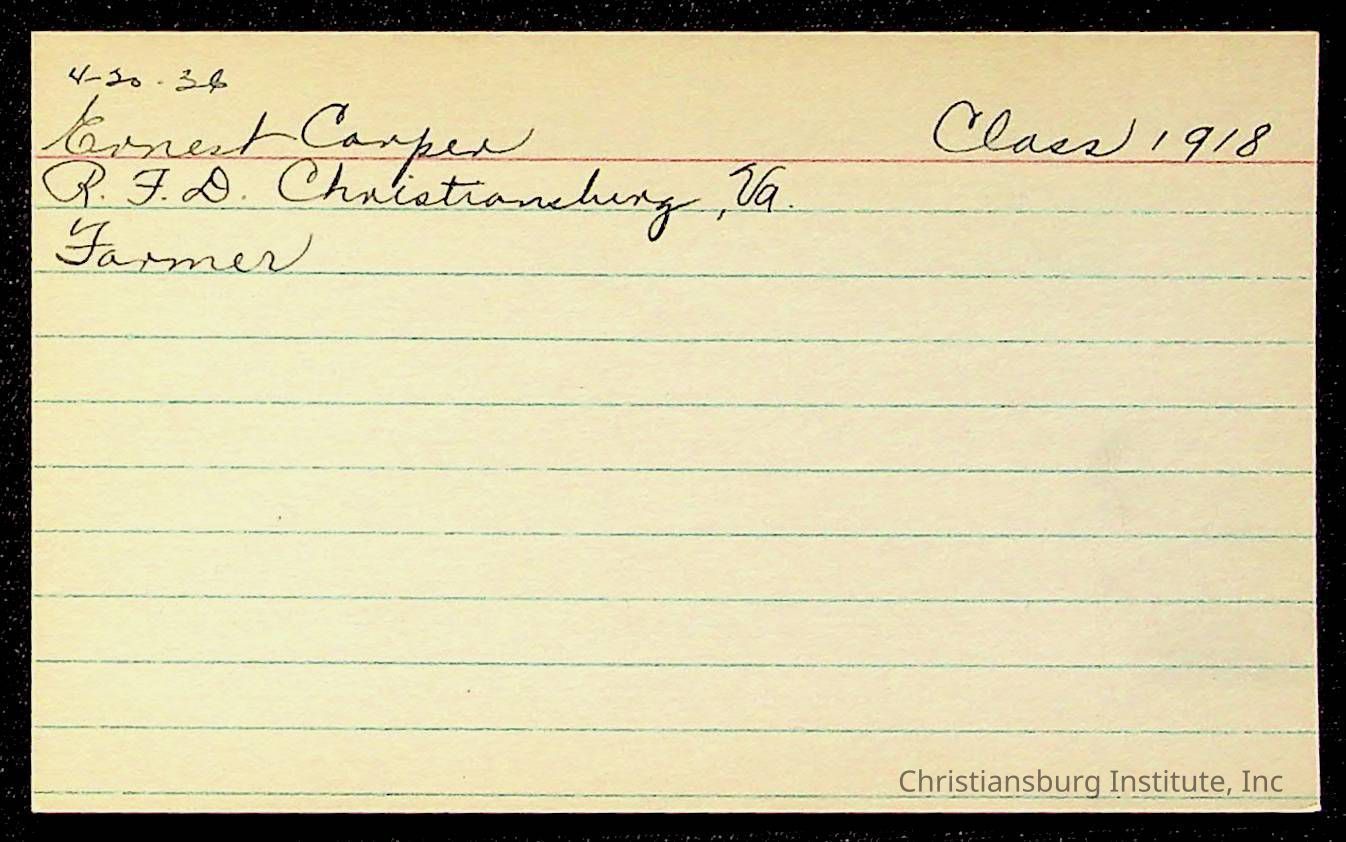 4-20-36
Ernest Carper Class 1918
R. F. D. Christiansburg, Va.
Farmer
Christiansburg Institute, Inc